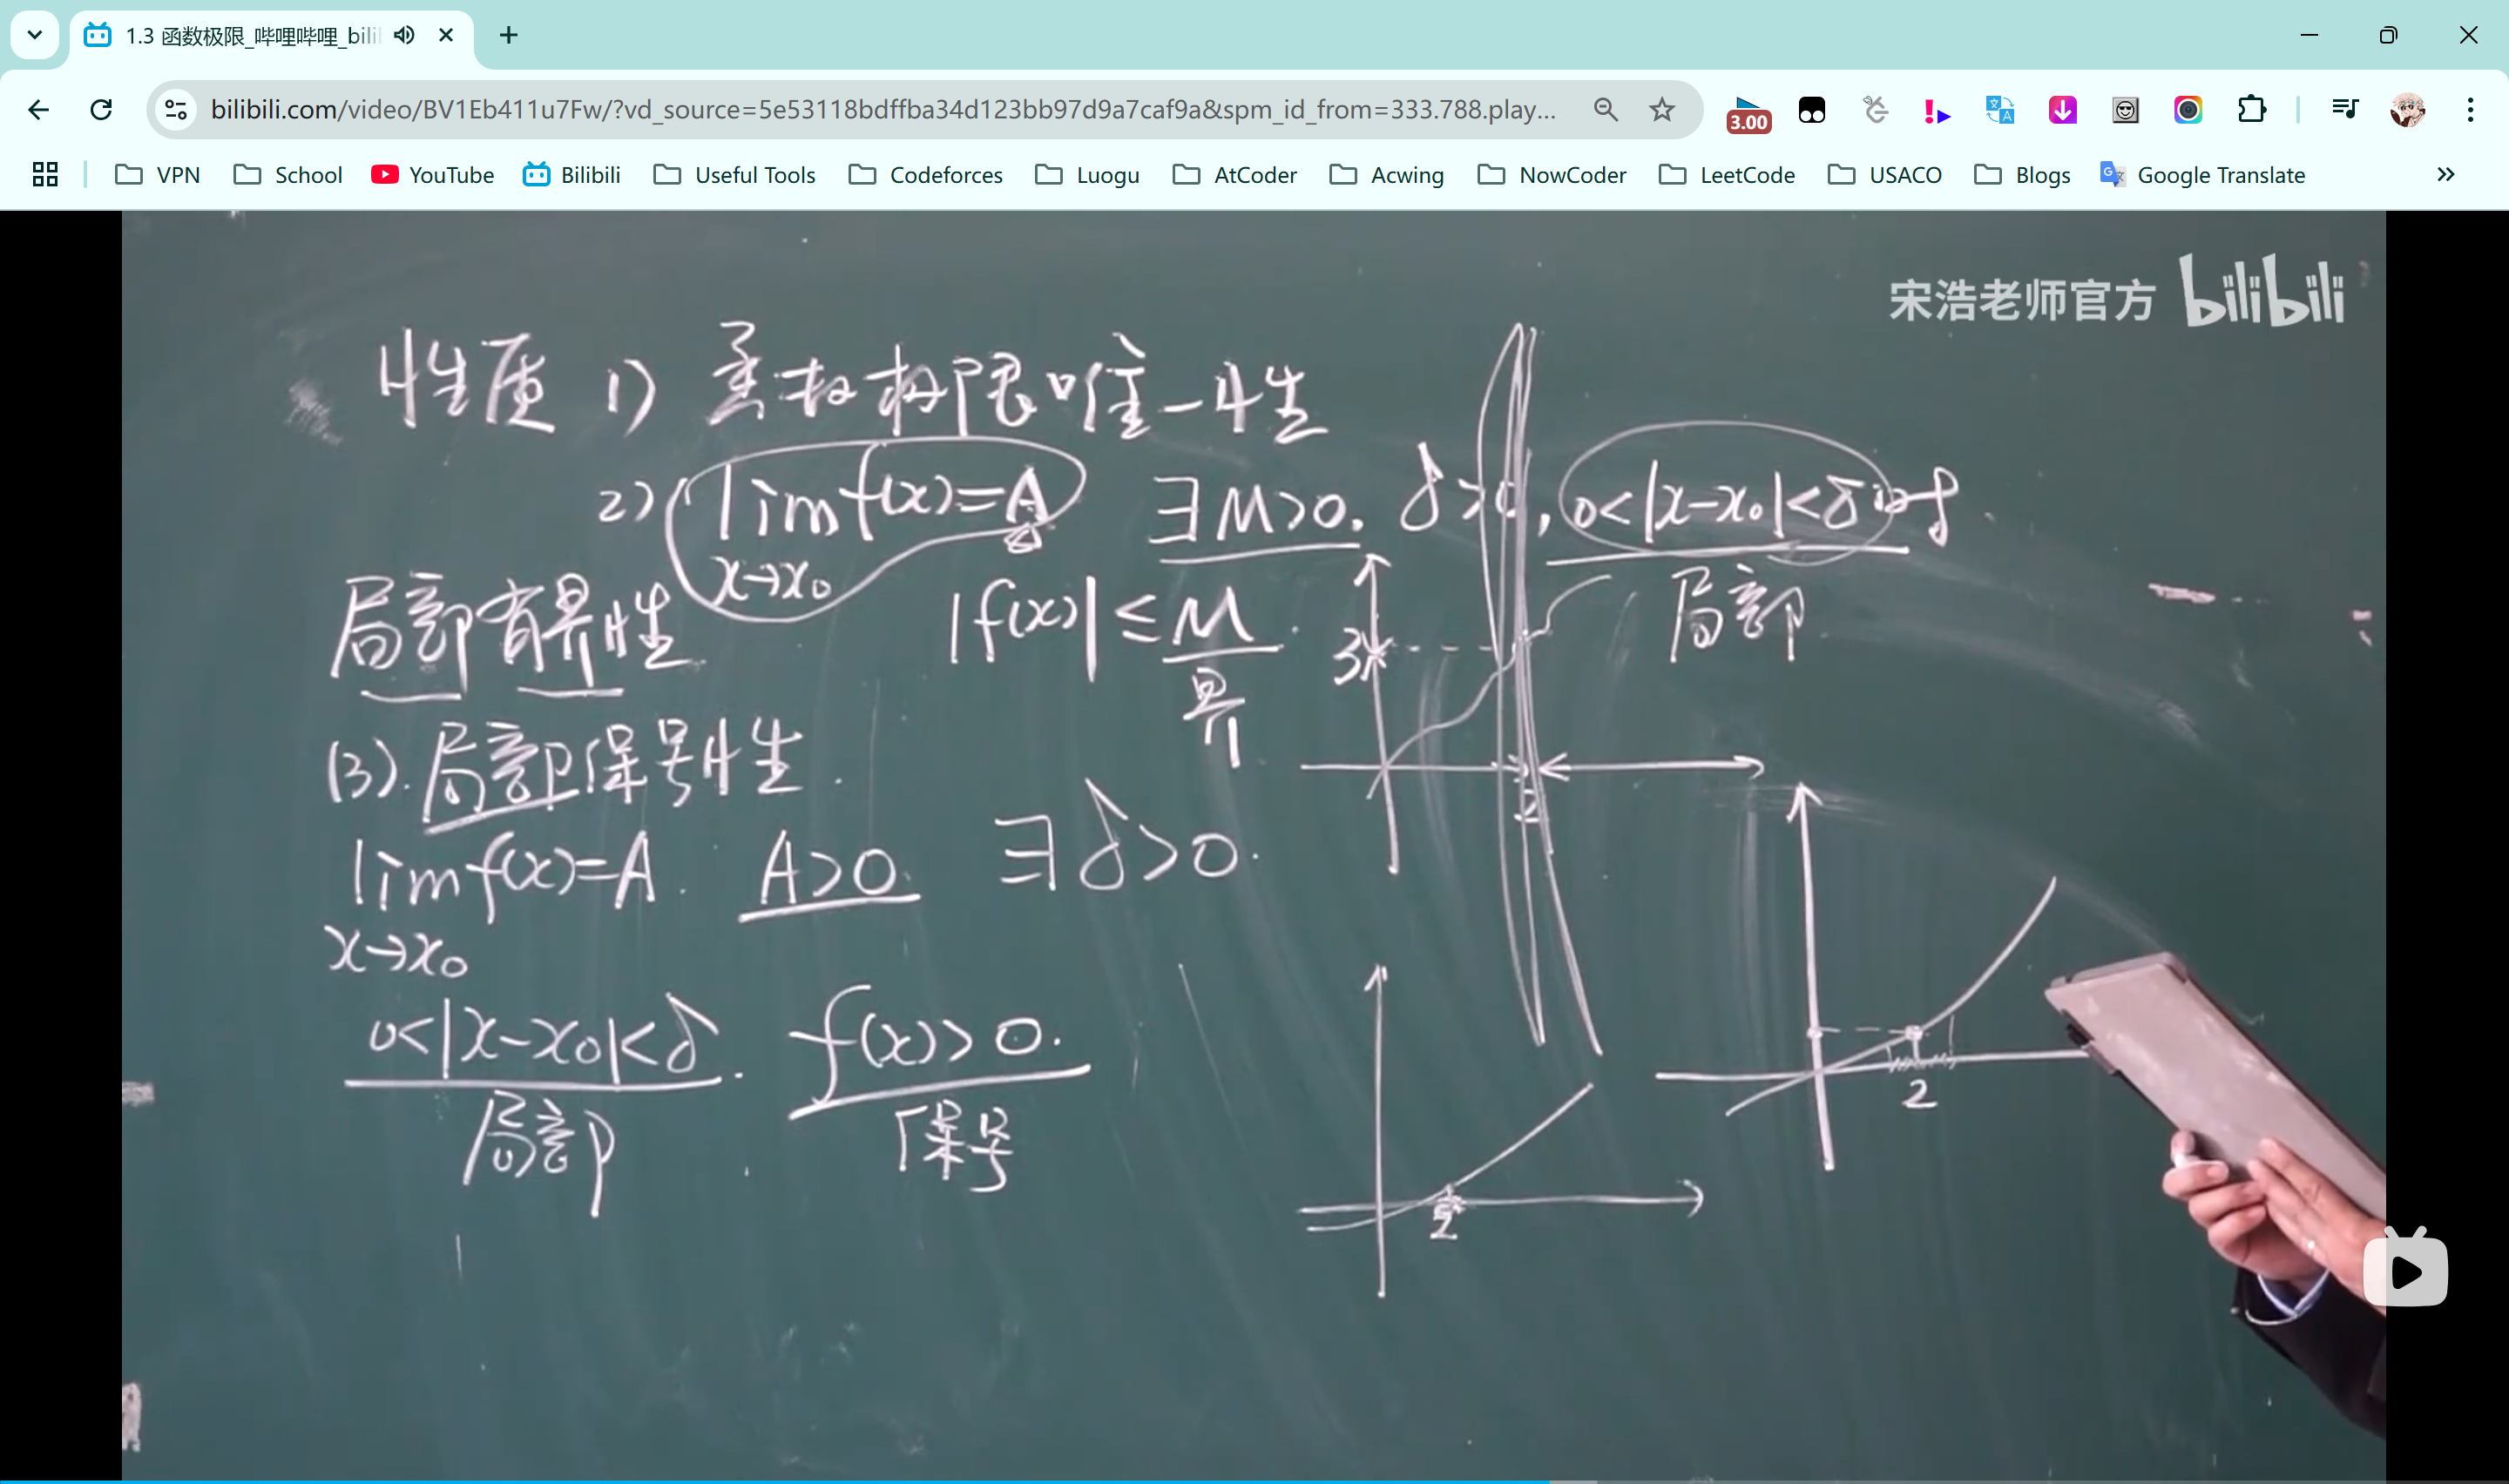 1.3 函数极限_哔哩哔哩_bili
bilibili.com/video/BV1Eb411u7Fw/?vd_source=5e53118bdffba34d123bb97d9a7caf9a&spm_id_from=333.788.play...
3.00
VPN School YouTube Bilibili Useful Tools Codeforces Luogu AtCoder Acwing NowCoder LeetCode USACO Blogs Google Translate
宋浩老师官方 bilibili
性质 1) 函数极限唯一性
2) lim f(x)=A ∃M>0. δ>0, 0<|x-x₀|<δ时
x→x₀
局部有界性 |f(x)|≤M. 局部
界
3
2
(3). 局部保号性.
lim f(x)=A. A>0. ∃δ>0.
x→x₀
0<|x-x₀|<δ. f(x)>0.
局部 保号
2
2